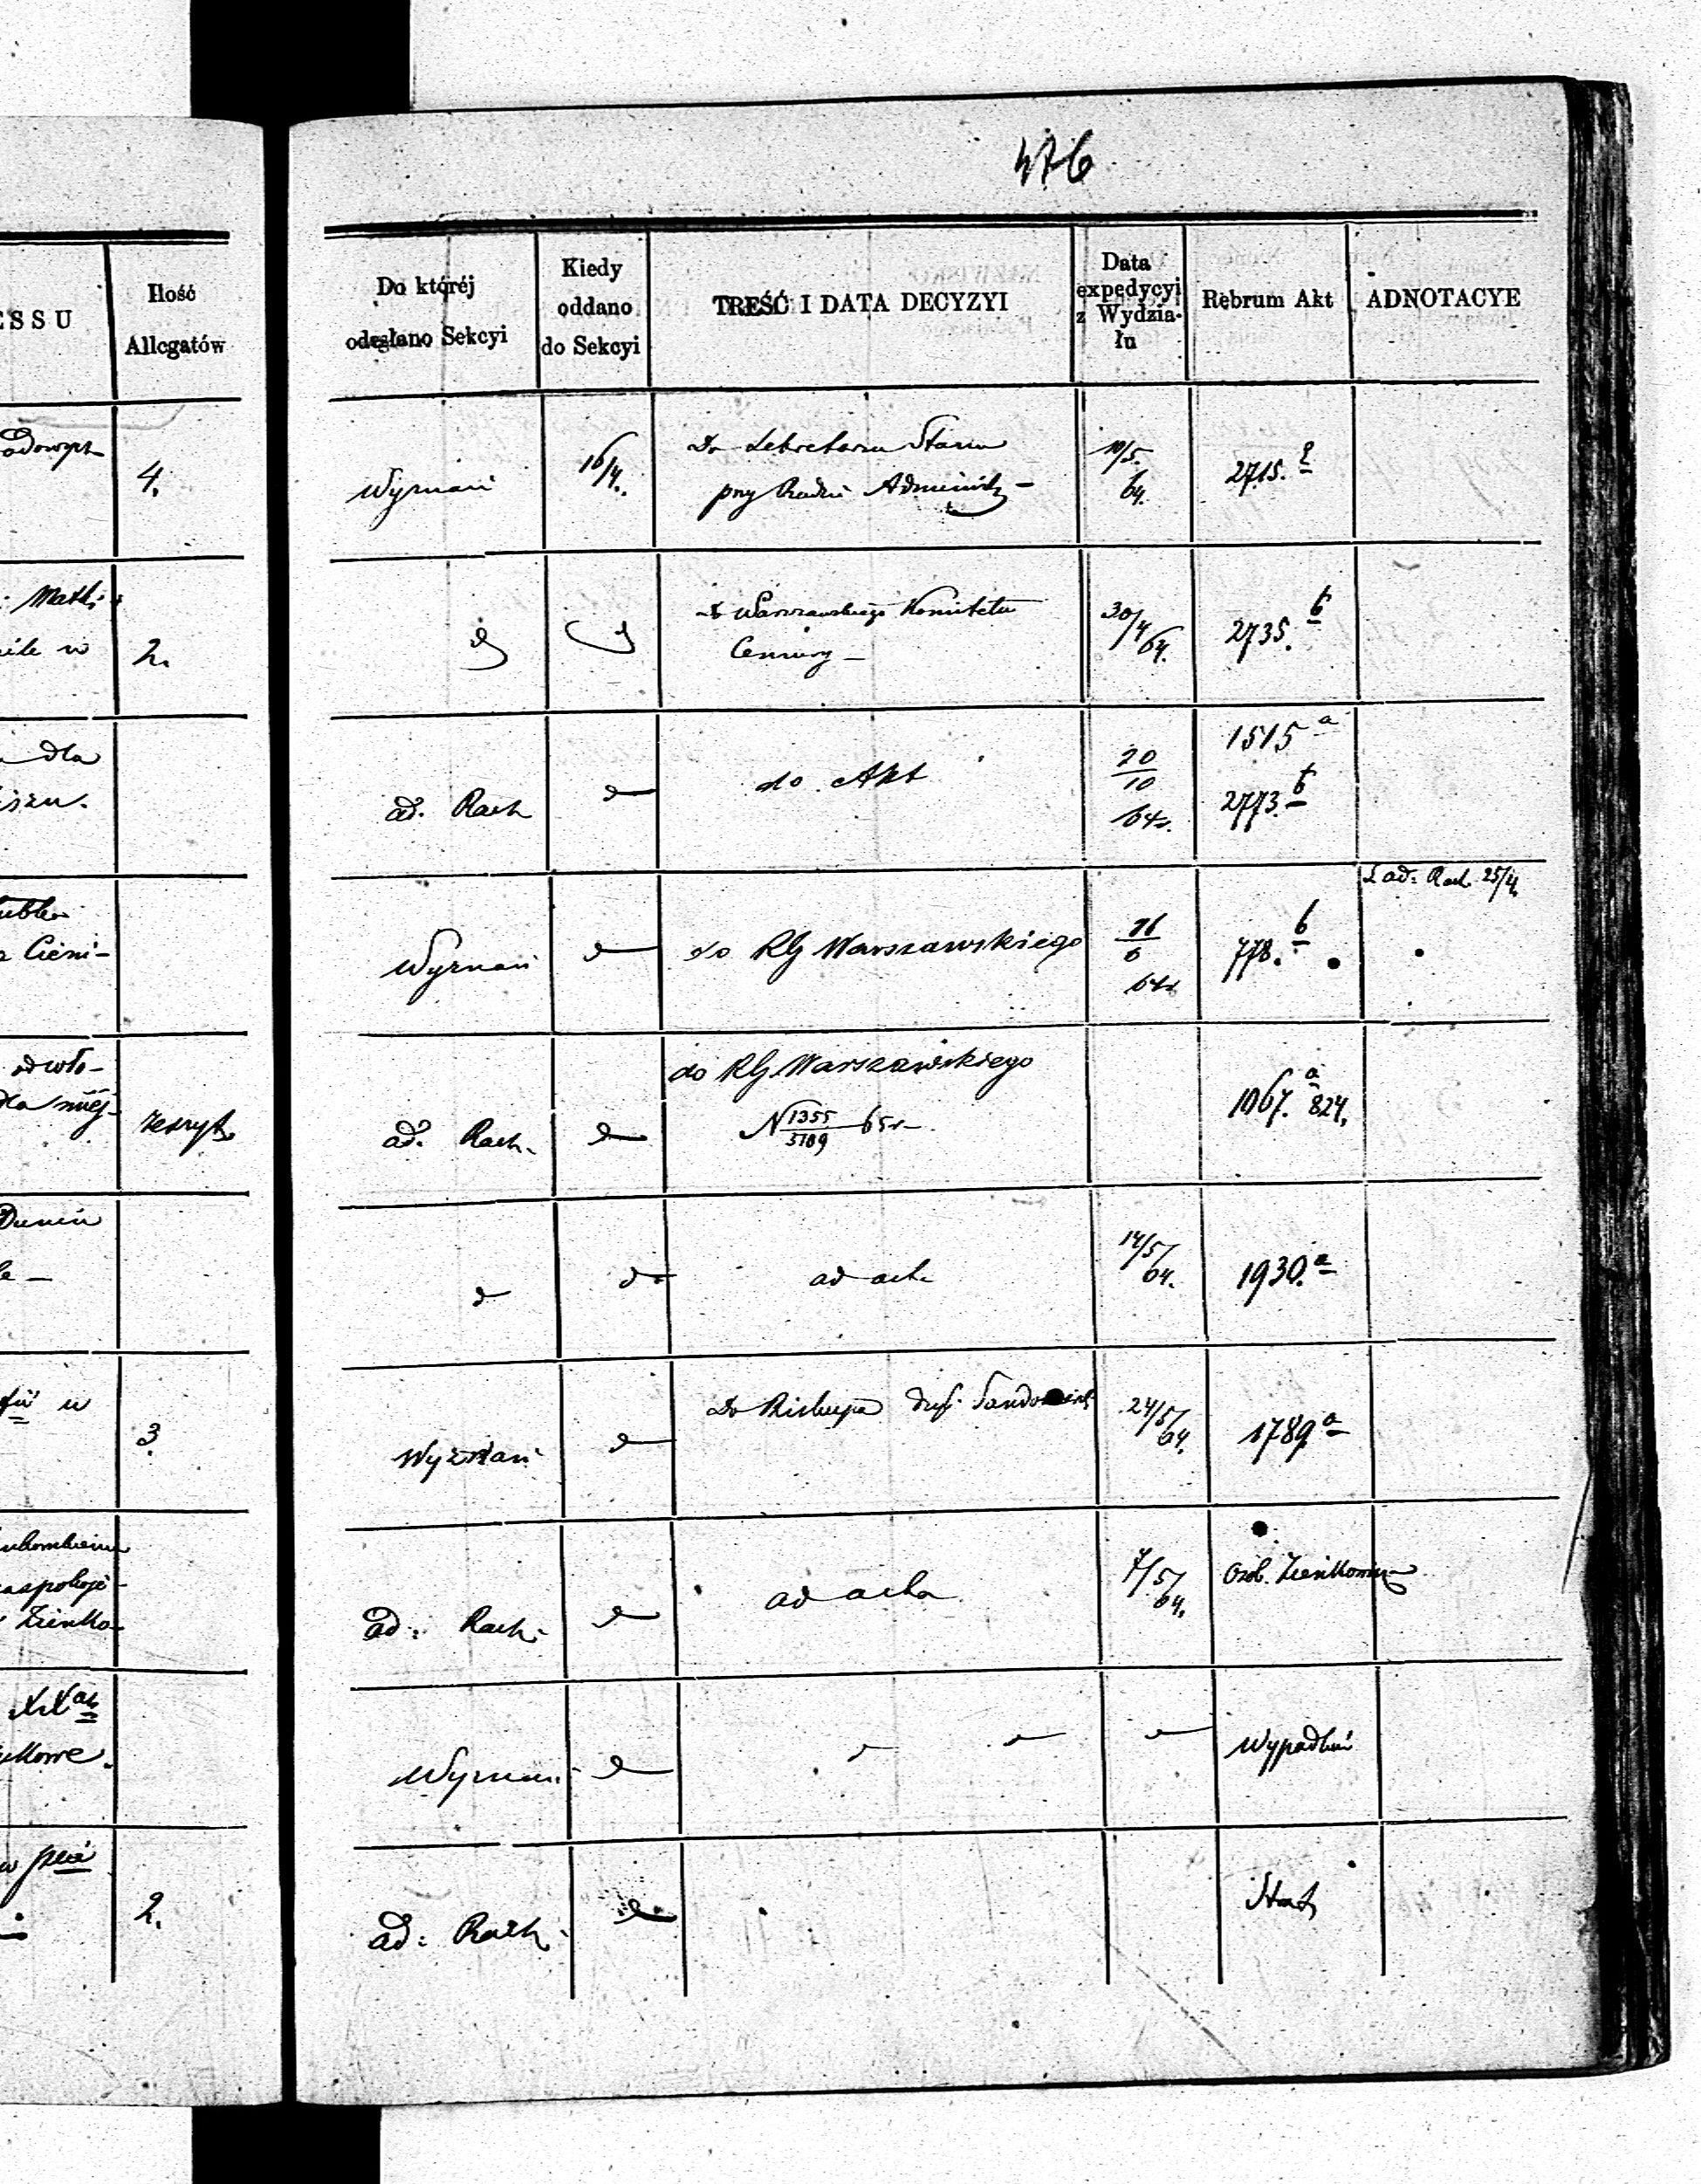 476
Ilość
Allegatów
4.
Matki
2.
dla
Cieni-
odwło-
zeszyt.
Dunin
w
3
Zienko-
2.
Do któréj
odesłano Sekcyi
Kiedy
oddano
do Sekcyi
TREŚĆ I DATA DECYZYI
Data
expedycyi
z Wydzia-
łu
Rebrum Akt
ADNOTACYE
Wyznań
16/4.
Do Sekretarza Stanu
przy Radzie Administr
10/5.
64.
2715.
d
d
do Warszawskiego Komitetu
Cenzury –
30/4
64.
2735. b
ad. Rach
d
do Akt
20
10
64r.
1515 a
2773. b
Wyznań
d
do RG Warszawskiego
16
6
64r
778. b
ad: Rach. 25/4
ad. Rach.
d
do RG Warszawskiego
N 1355
5189 65r
1067. a 824.
d
d
ad acta
14/5
64.
1930. a
Wyznań
d
Do Biskupa Sandomiers
24/5
64.
1789 a
ad: Rach:
d
ad acta
7/5
64.
Osob. Zienkowicz
Wyznań
d
ad: Rach.
d